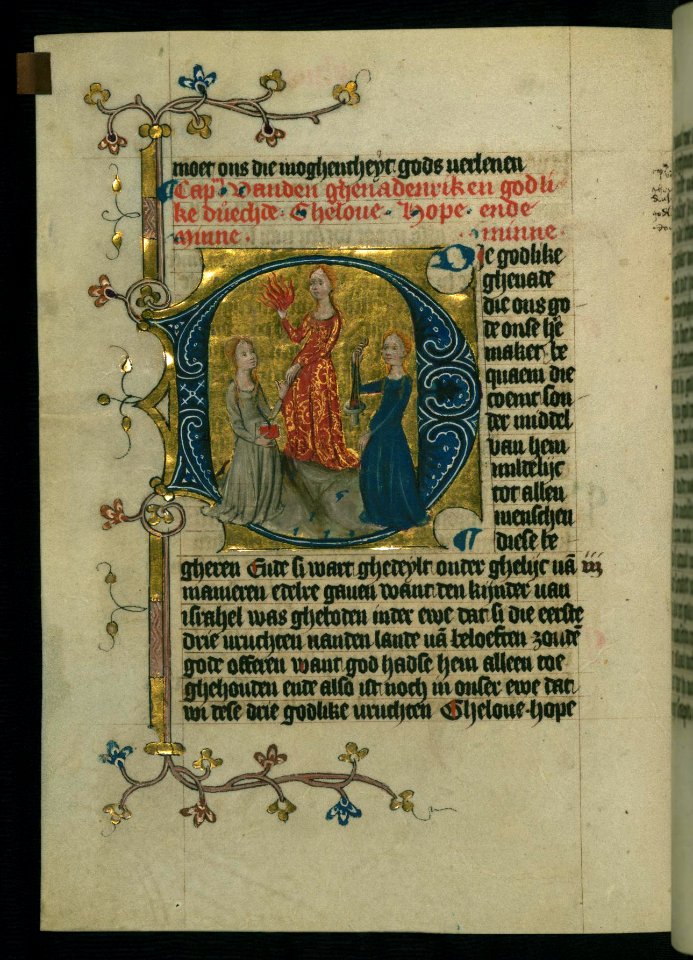 moet ons die moghentheyt gods verlenen
Cap. vanden ghenadenriken godli
ke duechde · Gheloue · Hope · ende
Minne · minne ·
De godlike
ghenade
die ons go
de onse he
maker be
quaem die
coemt son
der middel
van hem
mildelijc
tot allen
menschen
diese be
gheren Ende si wart ghedeylt onder ghelijc vā iij
manieren edelre gauen want den kijnder van
israhel was gheboden inder ewe dat si die eerste
drie vruchten vanden lande vā beloeften zoudē
gode offeren want god hadse hem alleen toe
ghehouden ende also ist noch in onser ewe dat
wi dese drie godlike vruchten Gheloue · hope